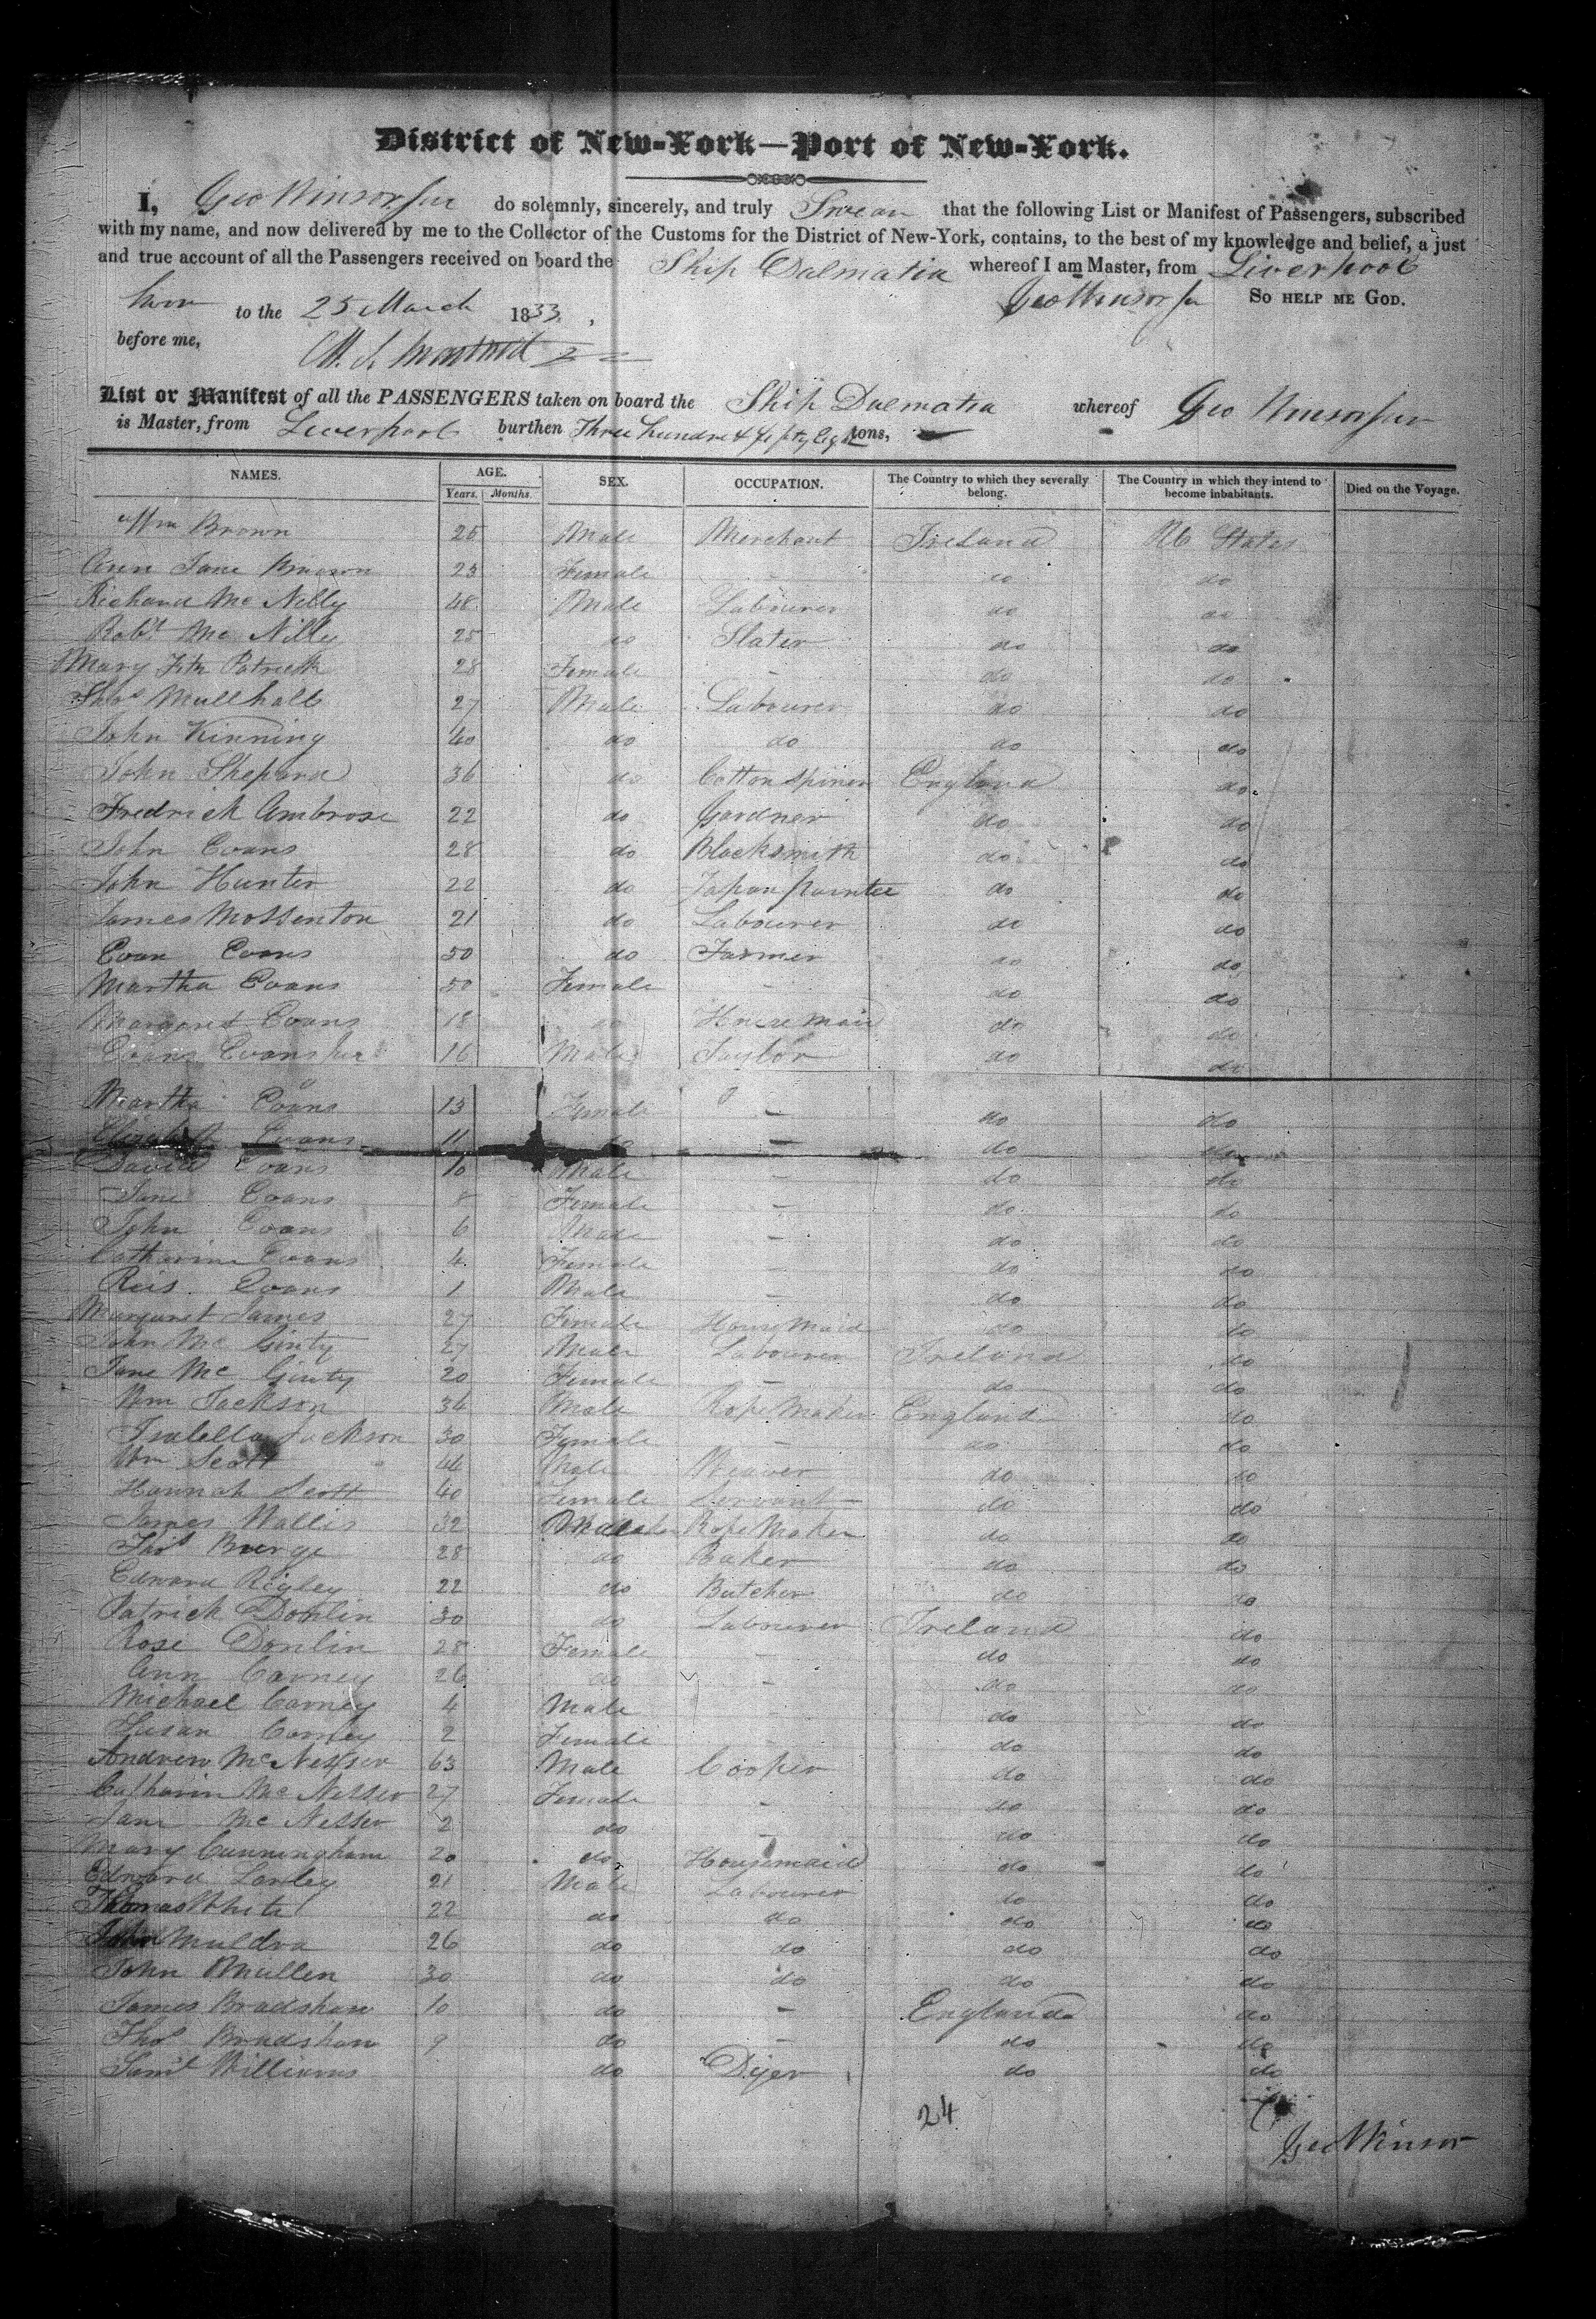 District of New-York—Port of New-York.
I, Geo Winsor Jur do solemnly, sincerely, and truly Swear that the following List or Manifest of Passengers, subscribed
with my name, and now delivered by me to the Collector of the Customs for the District of New-York, contains, to the best of my knowledge and belief, a just
and true account of all the Passengers received on board the Ship Dalmatia whereof I am Master, from Liverpool
Sworn to the 25 March 1833, Geo Winsor Jr SO HELP ME GOD.
before me,
List or Manifest of all the PASSENGERS taken on board the Ship Dalmatia whereof Geo Winsor Jur
is Master, from Liverpool burthen Three hundred & fifty Eight tons,
NAMES. AGE. SEX. OCCUPATION. The Country to which they severally belong. The Country in which they intend to become inhabitants. Died on the Voyage.
Years. Months.
Wm Brown 25 Male Merchant Ireland U States
Ann Jane Brown 23 Female - do do
Richard Mc Nelly 48 Male Labourer do do
Robt Mc Nilly 25 do Slater do do
Mary Fitz Patrick 28 Female - do do
Thos Mullhall 27 Male Labourer do do
John Kinning 40 do do do do
John Shepard 36 do Cotton Spiner England do
Fredrick Ambrose 22 do Gardner do do
John Evans 28 do Blacksmith do do
John Hunter 22 do Japan painter do do
James Mossenton 21 do Labourer do do
Evan Evans 50 do Farmer do do
Martha Evans 50 Female - do do
Margaret Evans 18 do House Maid do do
Evans Evans Jur 16 Male Taylor do do
Martha Evans 13 Female - do do
Elizabeth Evans 11 do - do do
David Evans 10 Male - do do
Jane Evans 8 Female - do do
John Evans 6 Male - do do
Catharine Evans 4 Female - do do
Reis Evans 1 Male - do do
Margaret James 27 Female House Maid do do
John Mc Ginty 27 Male Labourer Ireland do
Jane Mc Ginty 20 Female - do do
Wm Jackson 36 Male Rope Maker England do
Isabella Jackson 30 Female - do do
Wm Scott 44 Male Weaver do do
Hannah Scott 40 Female Servant do do
James Wallis 32 Male Rope Maker do do
Thos Burge 28 do Baker do do
Edward Rigley 22 do Butcher do do
Patrick Donlin 30 do Labourer Ireland do
Rose Donlin 28 Female - do do
Ann Carney 26 do - do do
Michael Carney 4 Male - do do
Susan Carney 2 Female - do do
Andrew Mc Nesser 63 Male Cooper do do
Catharin Mc Nesser 27 Female - do do
Jane Mc Nesser 2 do - do do
Mary Cunningham 20 do Housemaid do do
Edward Larley 21 Male Labourer do do
Thomas White 22 do do do do
John Muldra 26 do do do do
John Mullen 30 do do do do
James Bradshaw 10 do - England do
Thos Bradshaw 9 do - do do
Saml Williams do Dyer do do
24
Geo Winsor